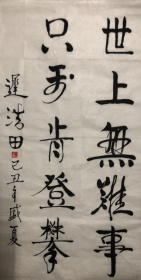 世上無難事
只要肯登攀
遲浩田 己丑年盛夏